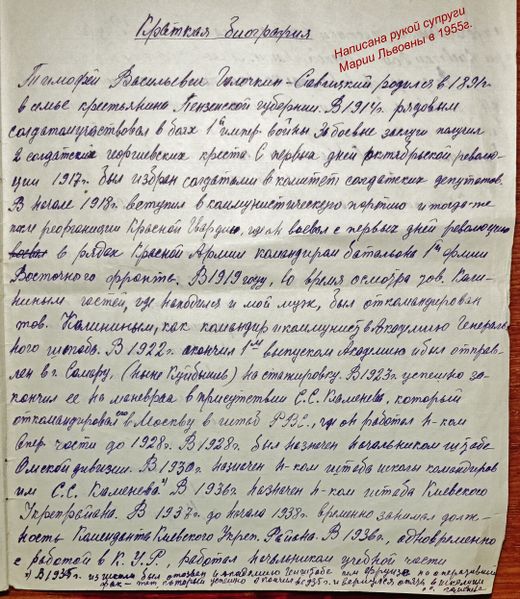 Краткая Биография
Написана рукой супруги
Марии Львовны в 1955г.
Тимофей Васильевич Галочкин-Савицкий родился в 1891г.
в семье крестьянина Пензенской губернии. В 1914г. рядовым
солдатом участвовал в боях 1й импер. войны. За боевые заслуги получил
2 солдатских георгиевских креста. С первых дней октябрьской револю-
ции 1917г. был избран солдатами в комитет солдатских депутатов.
В начале 1918г. вступил в коммунистическую партию и тогда-же
после реорганизации Красной Гвардии, где он воевал с первых дней революции
в рядах Красной Армии командиром батальона 1й армии
Восточного фронта. В 1919 году, во время осмотра тов. Кали-
ниным частей, где находился и мой муж, был откомандирован
тов. Калининым, как командир и коммунист в Академию Генераль-
ного штаба. В 1922г. окончил 1-м выпуском Академию и был отправ-
лен в г. Самару, (ныне Куйбышев) на стажировку. В 1923г. успешно за-
кончил ее на маневрах в присутствии С.С. Каменева, который
откомандировал его в Москву в штаб РВС, где он работал н-ком
Опер. части до 1928г. В 1928г. был назначен начальником штаба
Омской дивизии. В 1930г. назначен н-ком штаба школы командиров
им С.С. Каменева. х) В 1936г. назначен н-ком штаба Киевского
Укрепрайона. В 1937г. до начала 1938г. временно занимал долж-
ность Коменданта Киевского Укреп. Района. В 1936г., одновременно
с работой в К.У.Р., работал начальником учебной части
х) В 1935г. из школы был отозван в академию Генштаба им Фрунзе на оперативный
фак-тет который успешно окончил в 1935г. и вернулся опять в